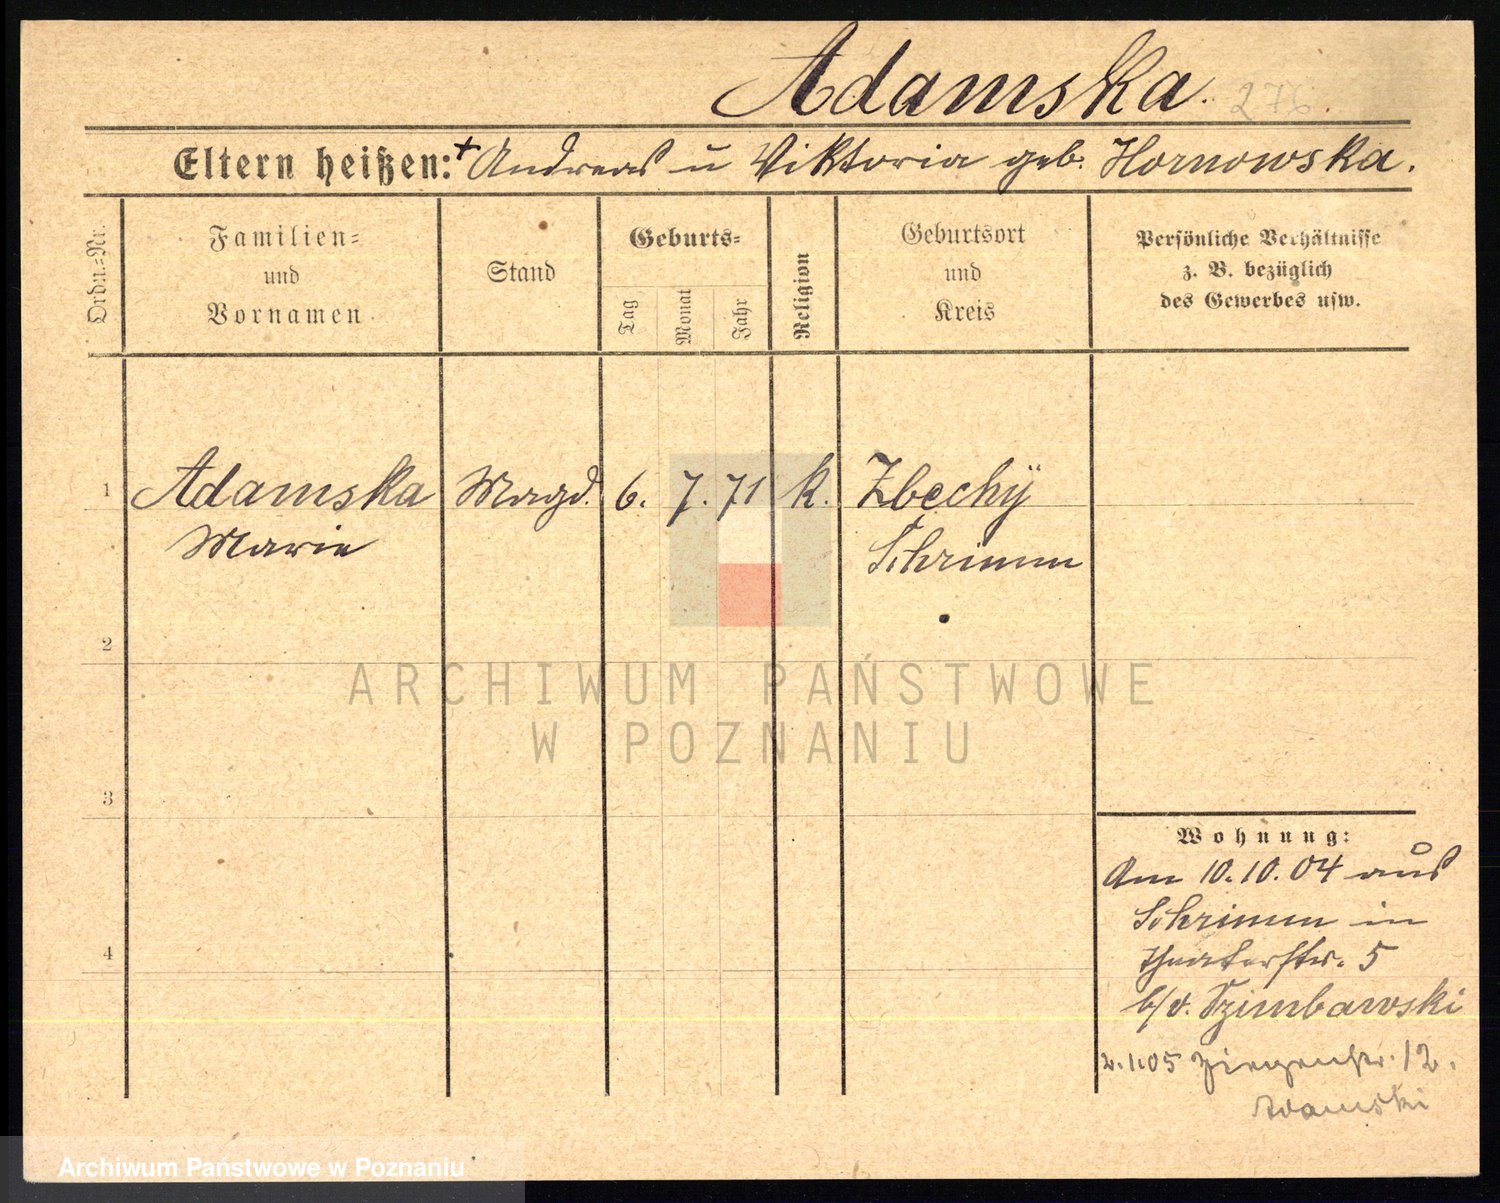 Adamska. 276.
Eltern heißen: + Andreas u Viktoria geb. Hornowska.
Ordn.=Nr.
Familien=
und
Vornamen
Stand
Geburts=
Tag
Monat
Jahr
Religion
Geburtsort
und
Kreis
Persönliche Verhältnisse
z. B. bezüglich
des Gewerbes usw.
1 Adamska Magd. 6. 7. 71 k. Zbechÿ
Marie Schrimm
2
ARCHIWUM PAŃSTWOWE
W POZNANIU
3
Wohnung:
Am 10.10.04 aus
Schrimm in
4
Theaterstr. 5
b/v. Szimbawski
2.1.05 Ziegenstr. 12.
Adamski
Archiwum Państwowe w Poznaniu